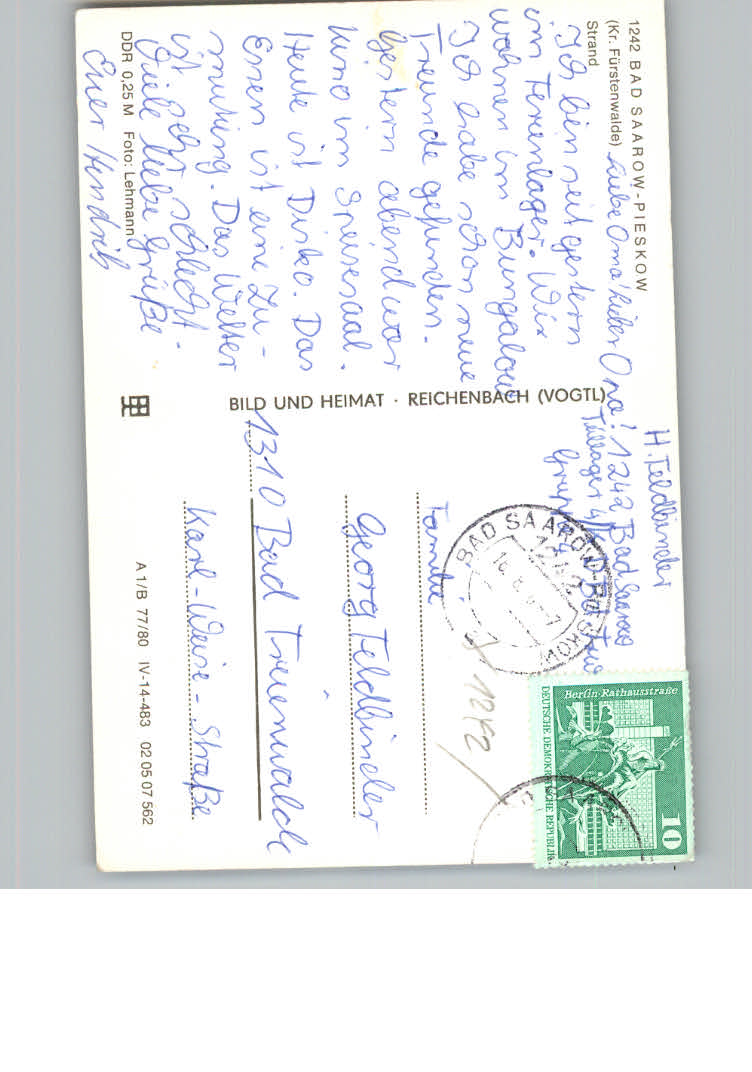 1242 BAD SAAROW-PIESKOW
(Kr. Fürstenwalde)
Strand
Liebe Oma! Lieber Opa!
Ich bin seit gestern
im Ferienlager. Wir
wohnen im Bungalow
Ich habe schon neue
Freunde gefunden.
Gestern abend war
Kino im Speisesaal.
Heute ist Disko. Das
Essen ist eine Zu-
mutung. Das Wetter
ist sehr schlecht.
Viele liebe Grüße
Euer Hendrik
DDR 0,25 M Foto: Lehmann
BILD UND HEIMAT · REICHENBACH (VOGTL)
H. Feldbinder
1242 Bad Saarow
Gruppe
BAD SAAROW-PIESKOW
1242
Berlin-Rathausstraße
DEUTSCHE DEMOKRATISCHE REPUBLIK
10
Familie
Georg Feldbinder
1310 Bad Freienwalde
Karl-Weise-Straße
A 1/B 77/80 IV-14-483 02 05 07 562